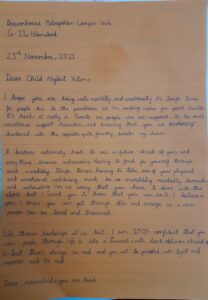 Beaconhouse Metropolitan Campus Girls
G-11, Islamabad
23rd November, 2021
Dear Child Neglect Victim,
I hope you are doing well mentally and emotionally. It's tough times
for people due to the pandemic so I'm sending wishes for good health.
It's hard it really is. Parents are people who are supposed to be our
emotional support themselves and knowing that you are
burdened with the opposite just genuinely breaks my heart.
It becomes extremely hard to see a future ahead of you and
everything becomes exhausting. Having to fend for yourself through
such incredibly tough times, having to take care of your physical
and emotional well-being must be so incredibly mentally demanding
and exhausting. I'm so sorry that you have to deal with this
alone but I want you to know that you can do it. I believe in
you. I know you can get through this and emerge as a new
person. You are loved and deserved.
Life throws hardships at us but I am 100% confident that you
can push through. Life is like a tunnel with dark abyss ahead of
it but there's always an end and you will be greeted with light and
warmth and the end.
Dear you are loved.